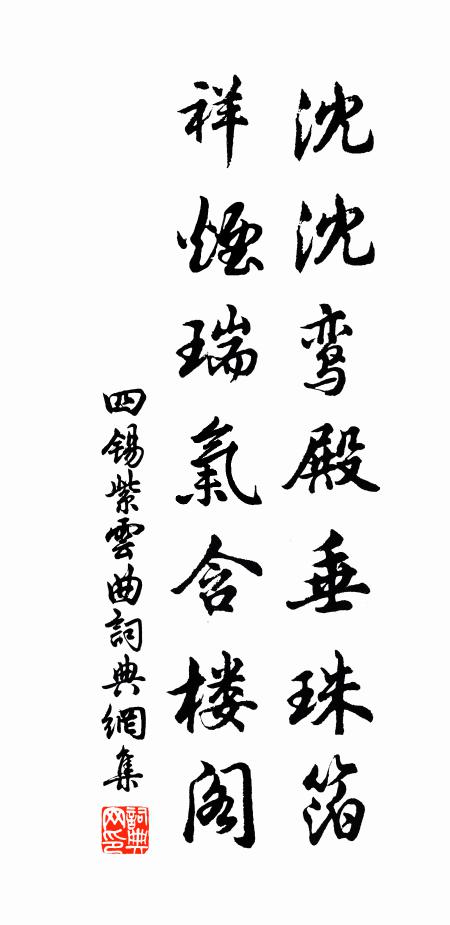 沈沈鸾殿垂珠箔
祥煙瑞氣含楼阁
四锡紫雲曲詞典網集
詞典网印